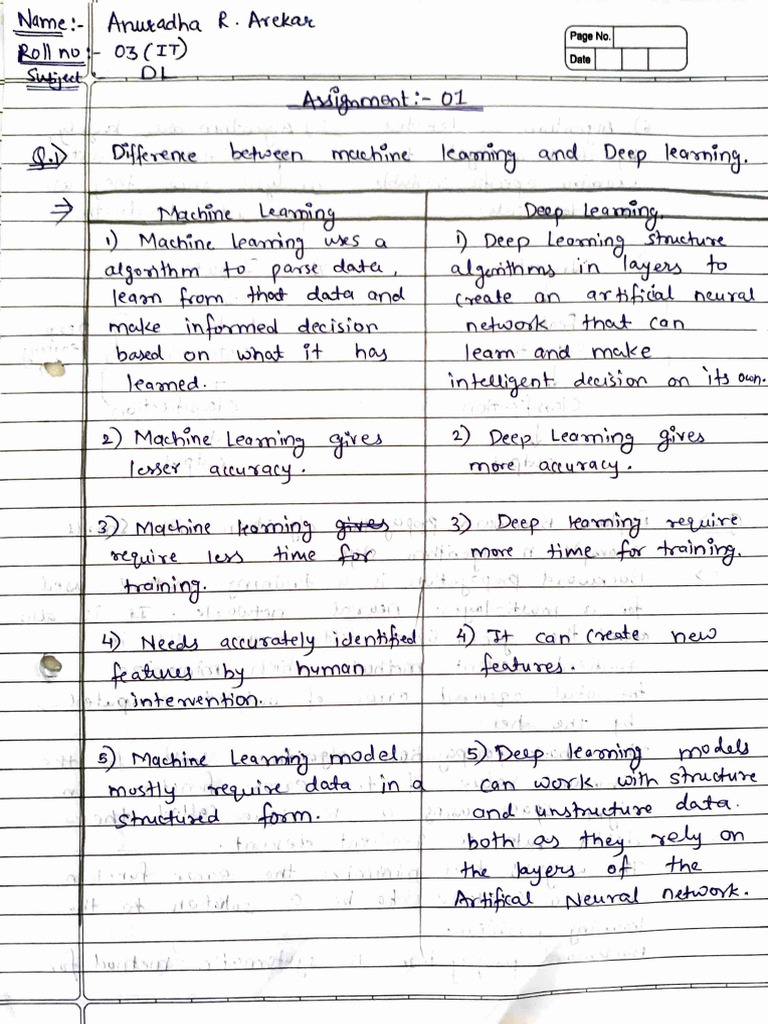 Name:- Anuradha R. Arekar
Roll no:- 03 (IT)
Subject - DL
Page No.
Date
Assignment:- 01
Q.1) Difference between machine learning and Deep learning.
→ Machine Learning
1) Machine learning uses a
algorithm to parse data,
learn from that data and
make informed decision
based on what it has
learned.
2) Machine Learning gives
lesser accuracy.
3) Machine learning gives
require less time for
training.
4) Needs accurately identified
features by human
intervention.
5) Machine Learning model
mostly require data in a
structured form.
Deep Learning.
1) Deep Learning structure
algorithms in layers to
create an artificial neural
network that can
learn and make
intelligent decision on its own.
2) Deep Learning gives
more accuracy.
3) Deep learning require
more time for training.
4) It can create new
features.
5) Deep learning models
can work with structure
and unstructure data.
both as they rely on
the layers of the
Artifical Neural network.